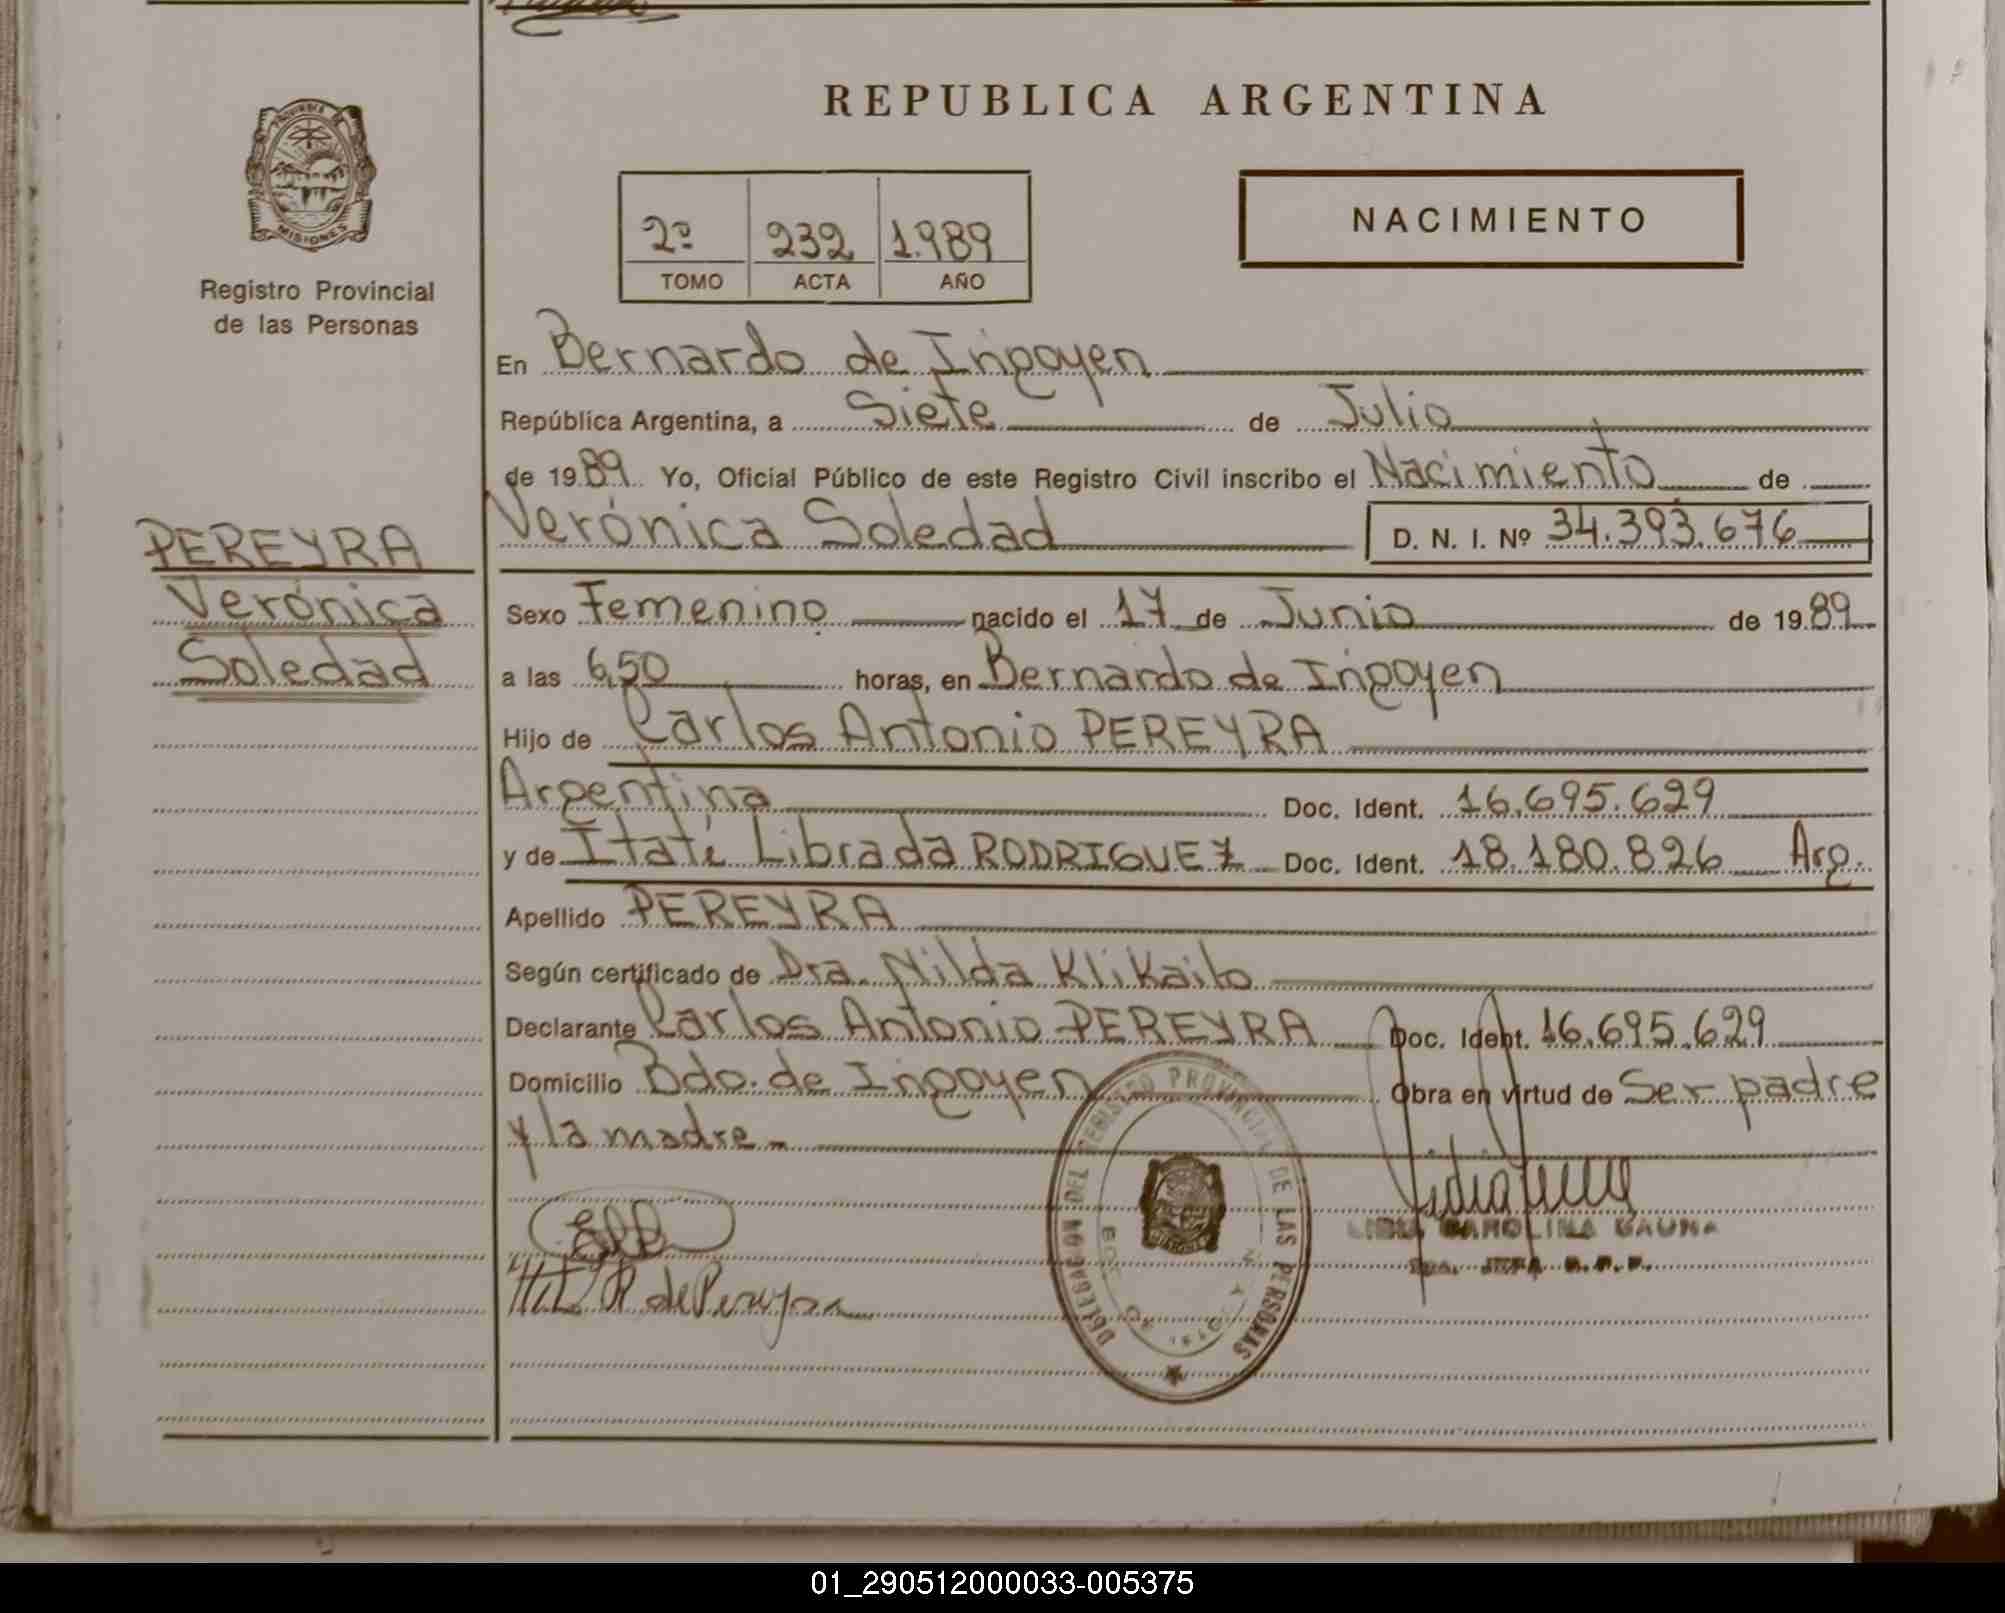 REPUBLICA ARGENTINA
PROVINCIA DE
MISIONES
Registro Provincial
de las Personas
2º 232 1.989
TOMO ACTA AÑO
NACIMIENTO
En Bernardo de Irigoyen
República Argentina, a Siete de Julio
de 1989 Yo, Oficial Público de este Registro Civil inscribo el Nacimiento de
Verónica Soledad D. N. I. Nº 34.393.676
PEREYRA
Verónica
Soledad
Sexo Femenino nacido el 17 de Junio de 1989
a las 6,50 horas, en Bernardo de Irigoyen
Hijo de Carlos Antonio PEREYRA
Argentina Doc. Ident. 16.695.629
y de Itatí Librada RODRIGUEZ Doc. Ident. 18.180.826 Arg.
Apellido PEREYRA
Según certificado de Dra. Nilda Klikailo
Declarante Carlos Antonio PEREYRA Doc. Ident. 16.695.629
Domicilio Bdo. de Irigoyen Obra en virtud de Ser padre
y la madre.
DELEGACION DEL REGISTRO PROVINCIAL DE LAS PERSONAS
LIDIA CAROLINA GAUNA
R. de Pereyra
01_290512000033-005375